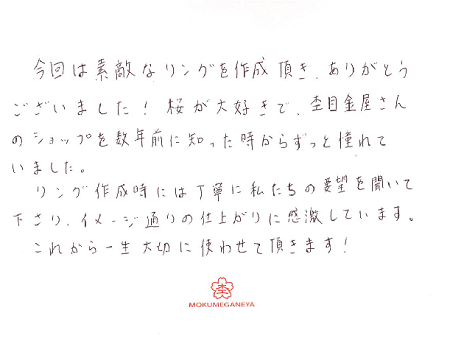 今回は素敵なリングを作成頂き、ありがとう
ございました！桜が大好きで、杢目金屋さん
のショップを数年前に知った時からずっと憧れて
いました。
リング作成時には丁寧に私たちの要望を聞いて
下さり、イメージ通りの仕上がりに感激しています。
これから一生大切に使わせて頂きます！
杢
MOKUMEGANEYA